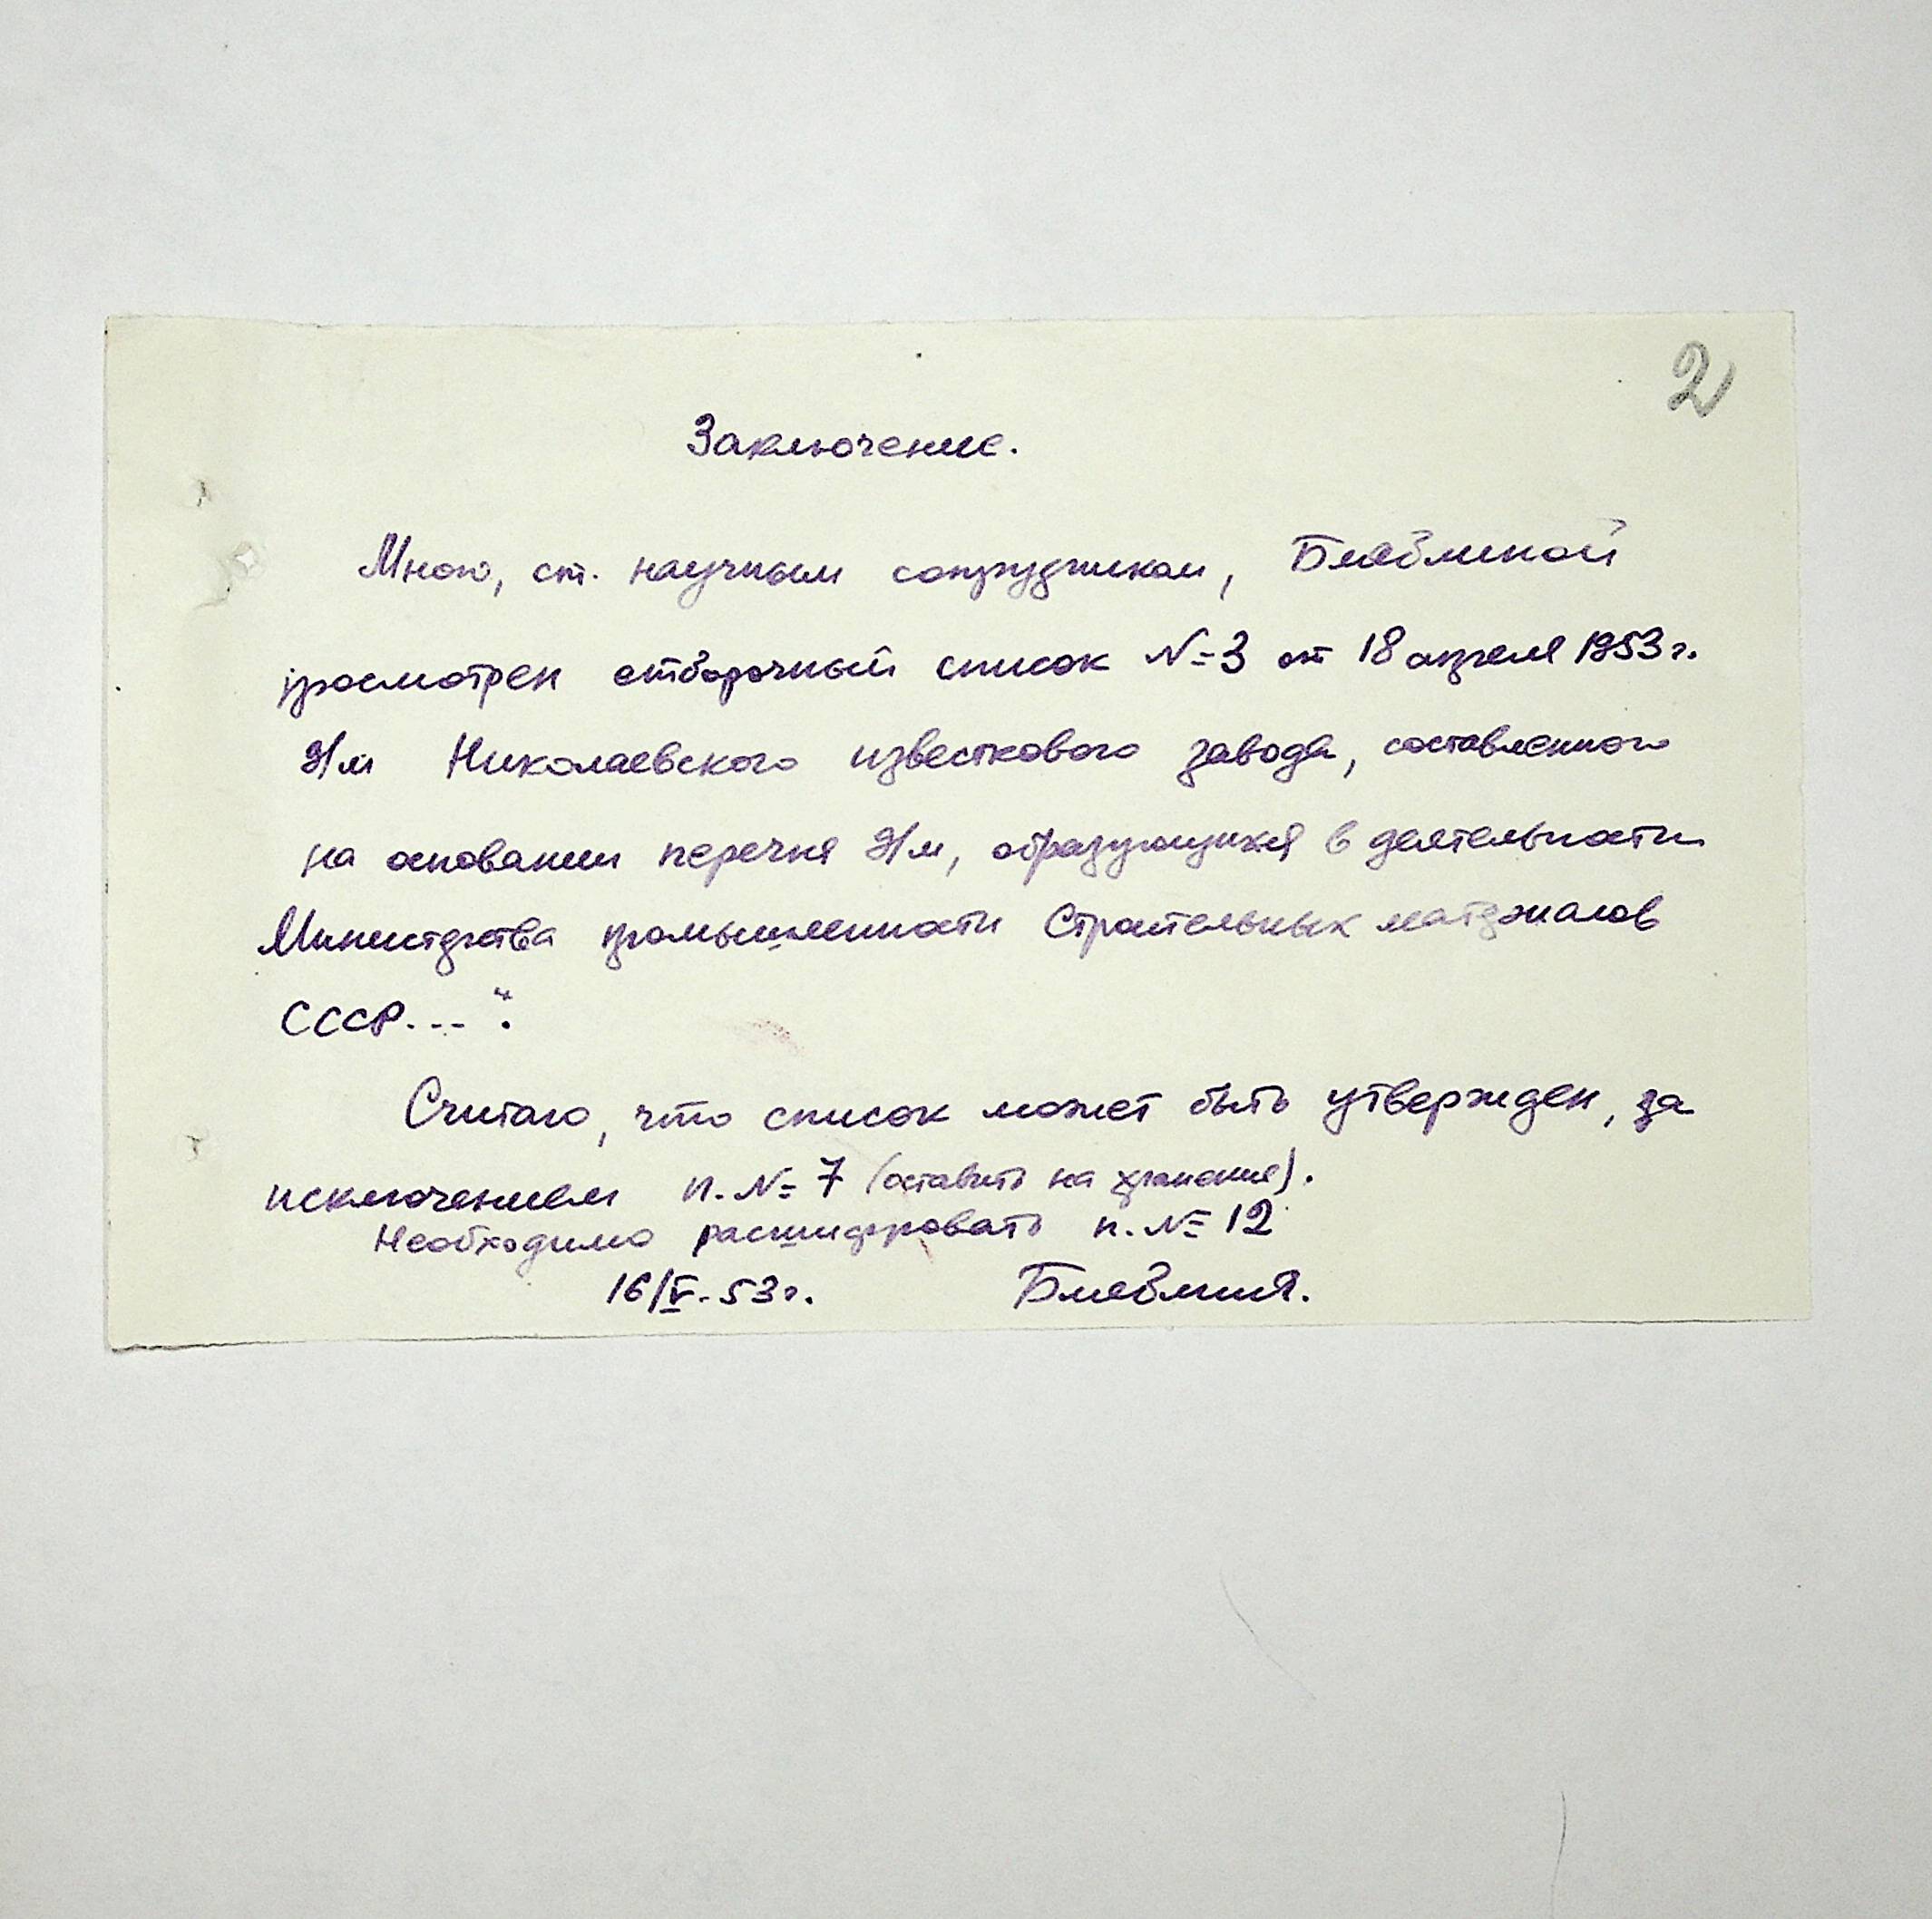 2
Заключение.
Мною, ст. научным сотрудником,
просмотрен отборочный список №3 от 18 апреля 1953 г.
Д/м Николаевского известкового завода, составленного
на основании перечня Д/м, образующихся в деятельности
Министерства промышленности Строительных материалов
СССР... ".
Считаю, что список может быть утвержден, за
исключением п. № 7 (оставить на хранение).
Необходимо расшифровать п. № 12
16/V-53 г.